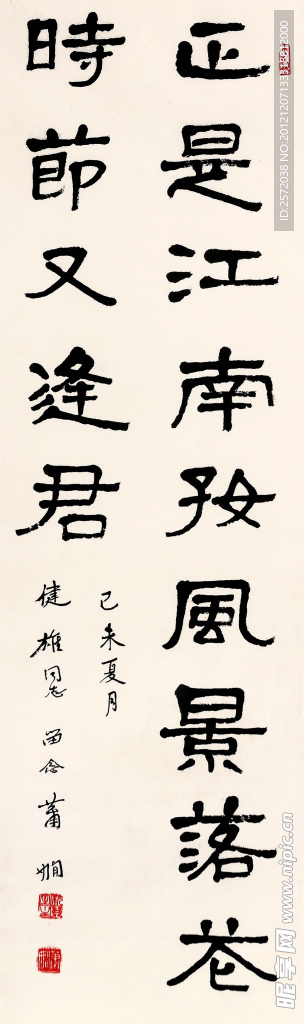 正是江南孜風景落花
時節又逢君
己未夏月
健雄同志留念蕭嫻
昵图网 www.nipic.cn
ID:2572038 NO:20121207133812312000